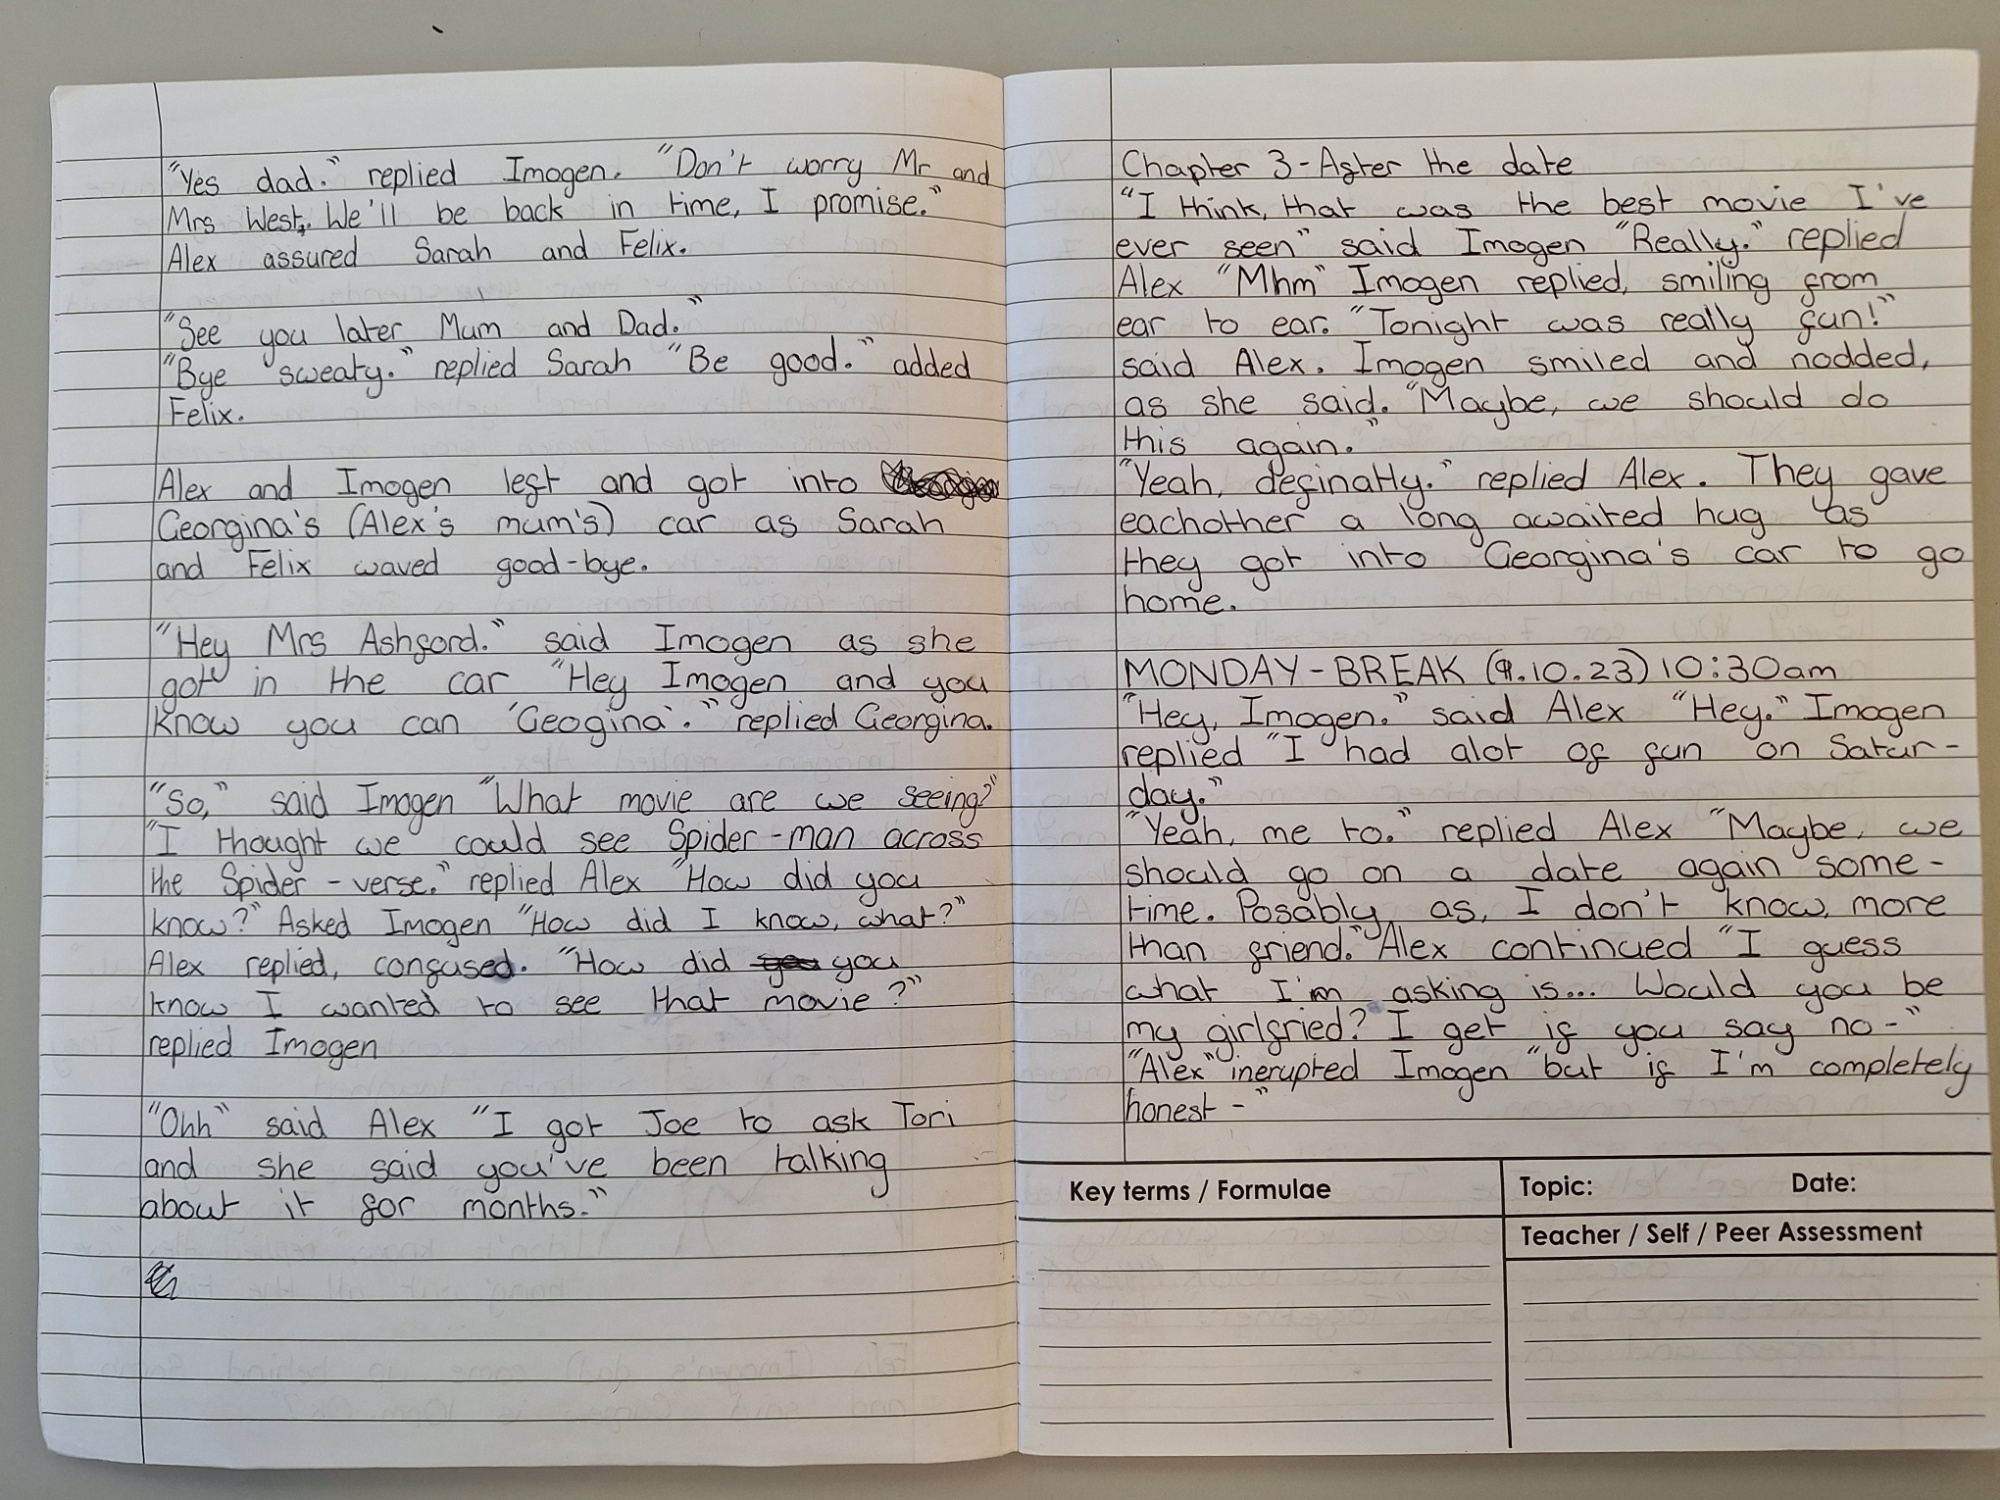 "Yes dad." replied Imogen. "Don't worry Mr and
Mrs West. We'll be back in time, I promise."
Alex assured Sarah and Felix.
"See you later Mum and Dad."
"Bye sweaty." replied Sarah "Be good." added
Felix.
Alex and Imogen left and got into
Georgina's (Alex's mum's) car as Sarah
and Felix waved good-bye.
"Hey Mrs Ashford." said Imogen as she
got in the car "Hey Imogen and you
know you can 'Geogina'." replied Georgina.
"So," said Imogen "What movie are we seeing?"
"I thought we could see Spider-man across
the Spider-verse." replied Alex "How did you
know?" Asked Imogen "How did I know, what?"
Alex replied, confused. "How did you
know I wanted to see that movie?"
replied Imogen
"Ohh" said Alex "I got Joe to ask Tori
and she said you've been talking
about it for months."
Chapter 3-After the date
"I think, that was the best movie I've
ever seen" said Imogen "Really." replied
Alex "Mhm" Imogen replied, smiling from
ear to ear. "Tonight was really fun!"
said Alex. Imogen smiled and nodded,
as she said. "Maybe, we should do
this again."
"Yeah, definatly." replied Alex. They gave
eachother a long awaited hug as
they got into Georgina's car to go
home.
MONDAY-BREAK (9.10.23) 10:30am
"Hey, Imogen." said Alex "Hey." Imogen
replied "I had alot of fun on Satur-
day."
"Yeah, me to." replied Alex "Maybe, we
should go on a date again some-
time. Posably, as, I don't know, more
than friend." Alex continued "I guess
what I'm asking is... Would you be
my girlfried? I get if you say no-"
"Alex" inerupted Imogen "but if I'm completely
honest-"
Key terms / Formulae
Topic: Date:
Teacher / Self / Peer Assessment